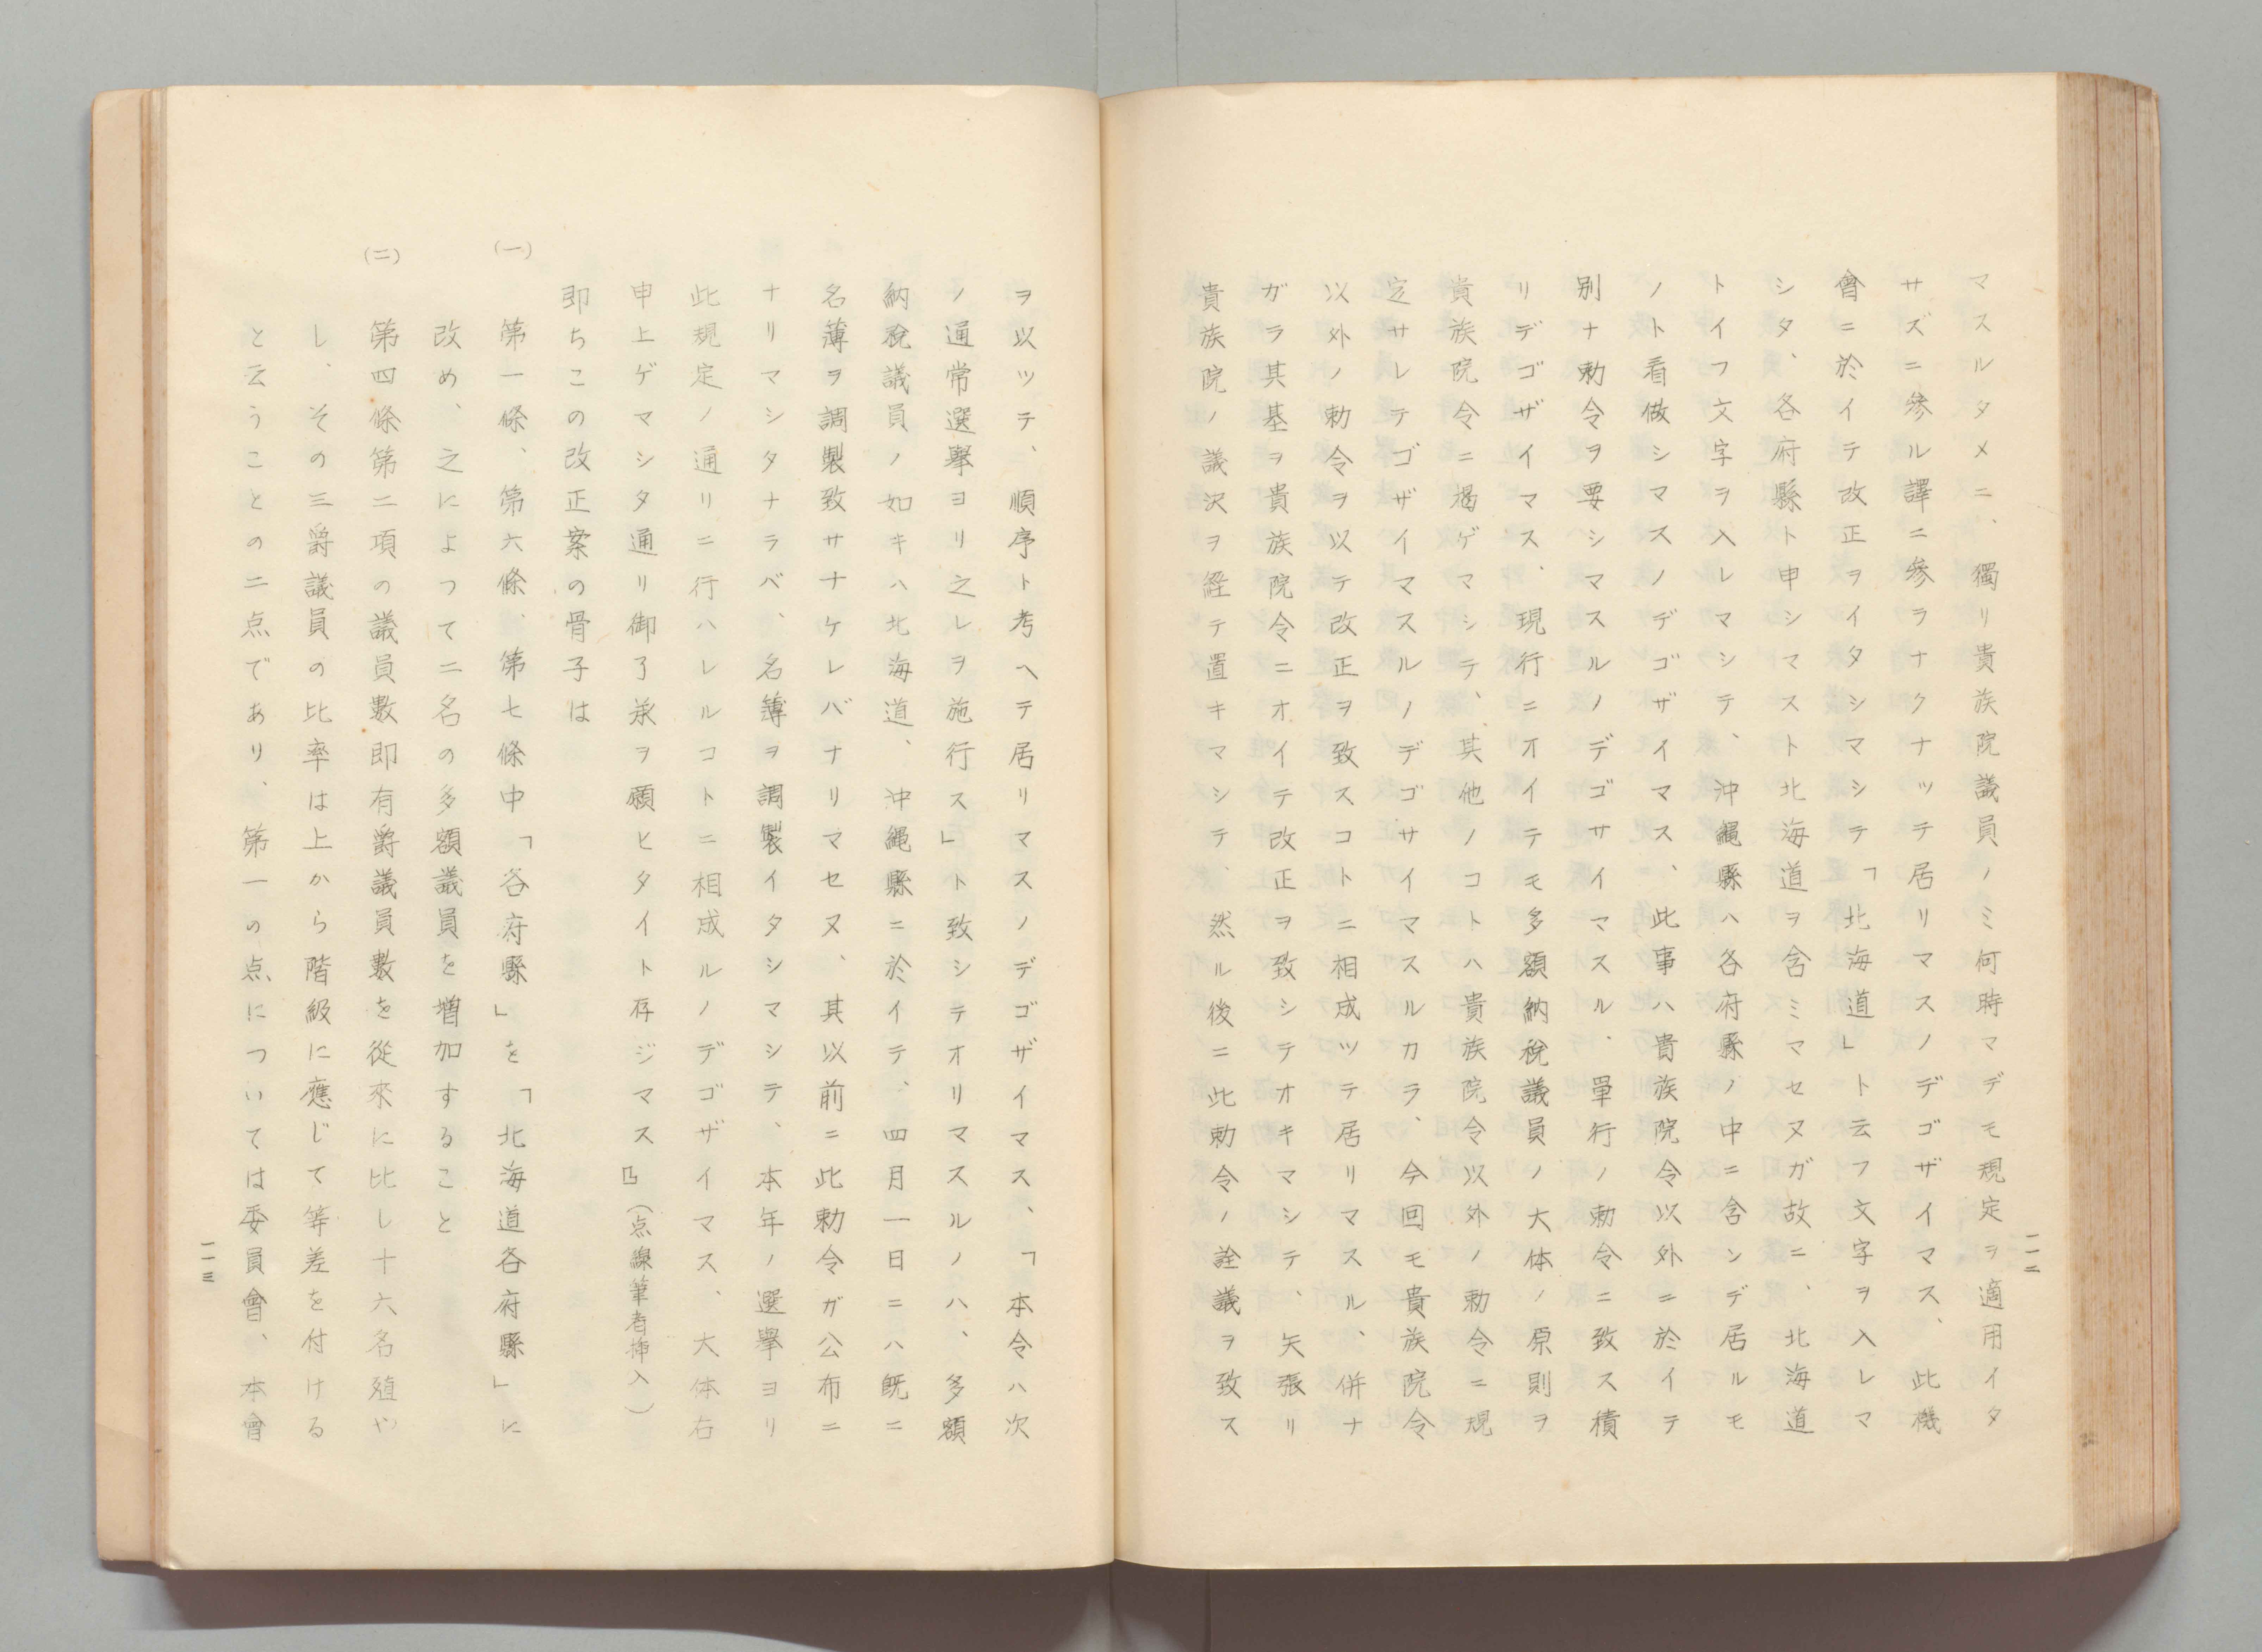 マスルタメニ、獨リ貴族院議員ノミ何時マデモ規定ヲ適用イタ
サズニ參ル譯ニ參ラナクナッテ居リマスノデゴザイマス、此機
會ニ於イテ改正ヲイタシマシテ「北海道」ト云フ文字ヲ入レマ
シタ、各府縣ト申シマスト北海道ヲ含ミマセヌガ故ニ、北海道
トイフ文字ヲ入レマシテ、沖縄縣ハ各府縣ノ中ニ含ンデ居ルモ
ノト看做シマスノデゴザイマス、此事ハ貴族院令以外ニ於イテ
別ナ勅令ヲ要シマスルノデゴサイマスル、單行ノ勅令ニ致ス積
リデゴザイマス、現行ニオイテモ多額納税議員ノ大体ノ原則ヲ
貴族院令ニ掲ゲマシテ、其他ノコトハ貴族院令以外ノ勅令ニ規
定サレテゴザイマスルノデゴサイマスルカラ、今回モ貴族院令
以外ノ勅令ヲ以テ改正ヲ致スコトニ相成ッテ居リマスル、併ナ
ガラ其基ヲ貴族院令ニオイテ改正ヲ致シテオキマシテ、矢張リ
貴族院ノ議決ヲ経テ置キマシテ、然ル後ニ此勅令ノ詮議ヲ致ス
一一二
ヲ以ッテ、順序ト考ヘテ居リマスノデゴザイマス、「本令ハ次
ノ通常選擧ヨリ之レヲ施行ス」ト致シテオリマスルノハ、多額
納税議員ノ如キハ北海道、沖縄縣ニ於イテ、四月一日ニハ既ニ
名薄ヲ調製致サナケレバナリマセヌ、其以前ニ此勅令ガ公布ニ
ナリマシタナラバ、名簿ヲ調製イタシマシテ、本年ノ選擧ヨリ
此規定ノ通リニ行ハレルコトニ相成ルノデゴザイマス、大体右
申上ゲマシタ通リ御了承ヲ願ヒタイト存ジマス』(点線筆者挿入)
即ちこの改正案の骨子は
(一) 第一條、第六條、第七條中「各府縣」を「北海道各府縣」に
改め、之によって二名の多額議員を増加すること
(二) 第四條第二項の議員數即有爵議員數を從來に比し十六名殖や
し、その三爵議員の比率は上から階級に應じて等差を付ける
と云うことの二点であり、第一の点については委員會、本會
一一三